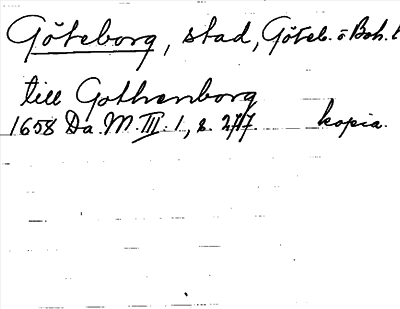 Göteborg, stad, Göteb. o Boh. l
till Gothenborg
1658 Da. M. III. 1, s. 247. kopia.